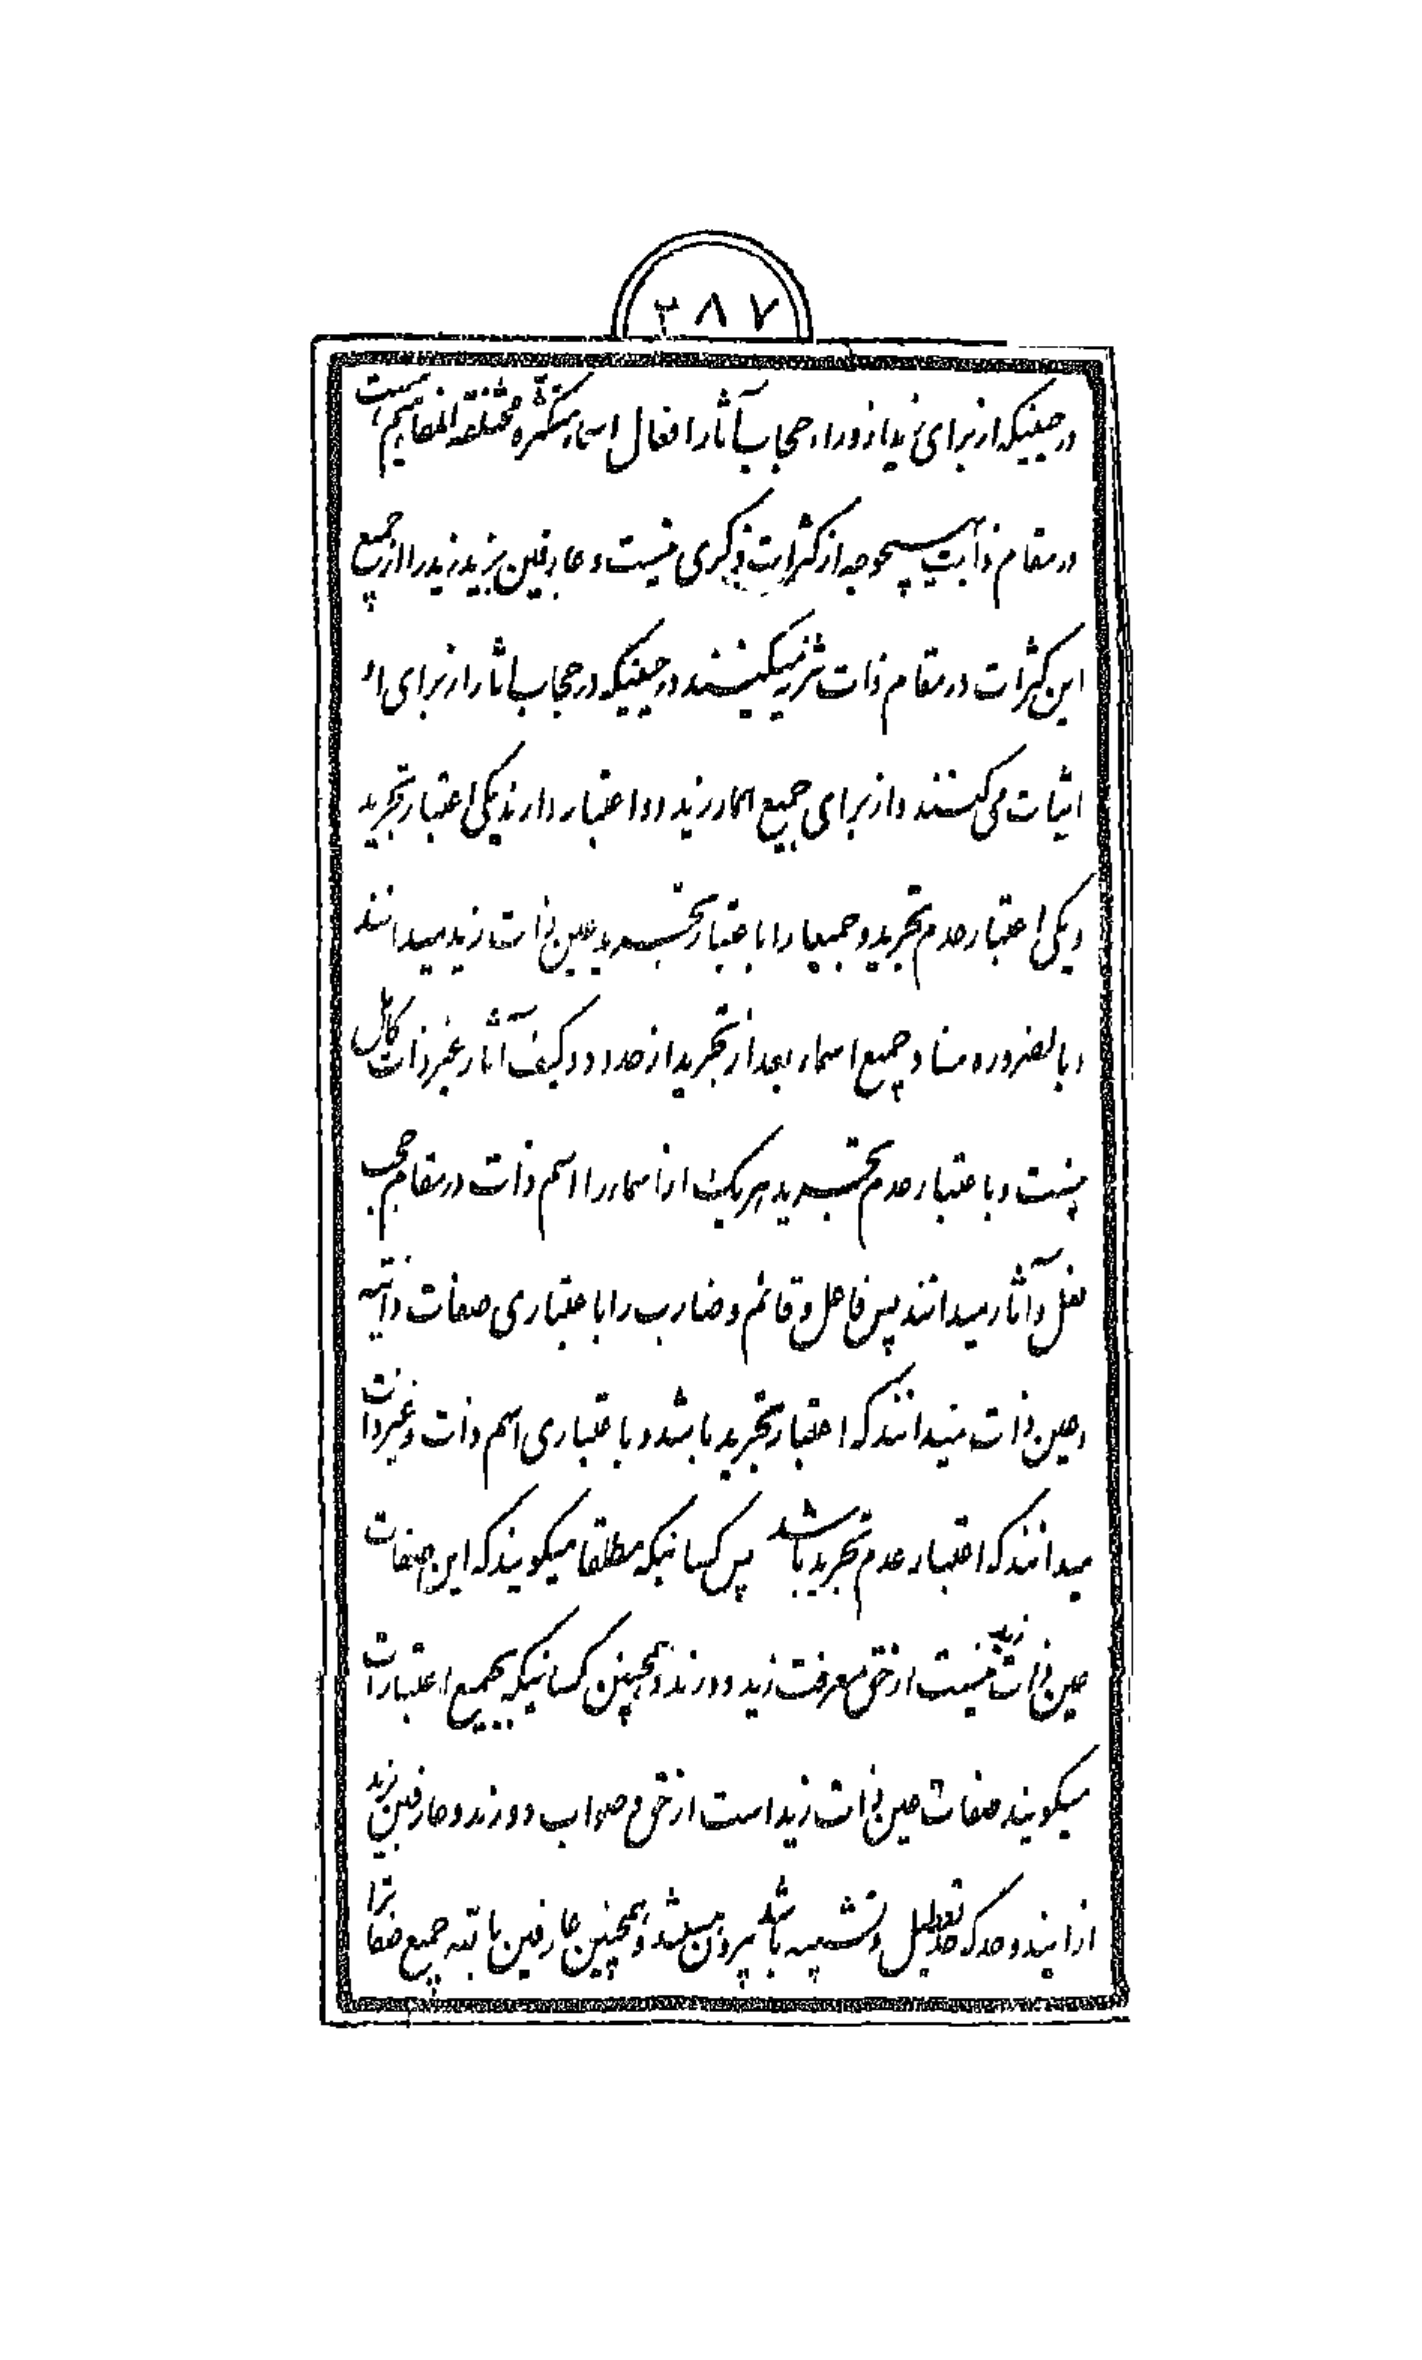 ۲۸۷
در حینیکه از برای زید از وراء حجاب آثار افعال اسماء متکثره مختلفة المفاهیم است
در مقام ذاتیت بهیچوجه از کثرات ذکری نیست و عارفین بزید زید را از جمیع
این کثرات در مقام ذات تنزیه میکنند در حینیکه در حجاب اثار از برای او
اثبات می کنند و از برای جمیع اسماء زید دو اعتبار دارند یکی اعتبار تجرید
و یکی اعتبار عدم تجرید و جمیعا را باعتبار تجرید عین ذات زید میدانند
و بالضروره مفاد جمیع اسماء بعد از تجرید از حدود و کیف آثار غیر ذات کامل
نیست و باعتبار عدم تجرید هر یک از اسماء را اسم ذات در مقام حجب
فعل و آثار میدانند پس فاعل و قائم و ضارب را باعتباری صفات ذاتیه
و عین ذات میدانند که اعتبار تجرید باشد و باعتباری اسم ذات و غیر ذات
میدانند که اعتبار عدم تجرید باشد پس کسانیکه مطلقا میکویند که این صفات
عین ذات زید نیست از حق معرفت زید دورند و همچنین کسانیکه بجمیع اعتبارات
میکویند صفات عین ذات زید است از حق و صواب دورند و عارفین بزید
از ایندو حد که حد تعطیل و تشبیه باشد بیرون میباشند و همچنین عارفین بالله جمیع صفا ترا